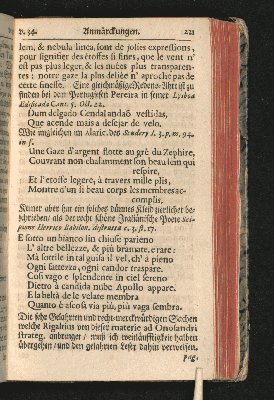 v. 34. Anmärckungen. 221
lem, & nebula linea, sont de jolies expressions,
pour signifier des étoffes si fines, que le vent n'
est pas plus leger, & les nuées plus transparen-
tes: notre gaze la plus deliée n' aproche pas de
cette finesse. Eine gleichmäßige Redens-Ahrt ist zu
finden bei den Portugisen Pereira in seiner Lysboa
Edificada Cant. 5. Ott. 22.
Dum delgado Cendal andaõ vestidas,
Que acende mais a desejar de velo.
Wie ingleichen im Alaric. des Scudery l. 3. p. m. 94.
in f.
Une Gaze d'argent flotte au gré du Zephire,
Couvrant non chalamment son beau sein qui
respire,
Et l'étoffe legere, à travers mille plis,
Montre d'un si beau corps les membres ac-
complis.
Keiner aber hat ein solches dünnes Kleid zierlicher be-
schrieben/ als der recht schöne Italiänische Poete Sci-
pione Herrico Babilon. distrutta c. 3. st. 17.
E sotto un bianco lin chiuse parieno
L' altre bellezze, & più bramate, erare:
Mà sottile in tal guisa il vel, ch' à pieno
Ogni fattezza, ogni candor traspare.
Così vago e splendente in ciel sereno
Dietro à candida nube Apollo appare.
E la beltà de le velate membra
Quanto è ascosa via più, più vaga sembra.
Die sehr Gelahrten und recht-merckwürdigen Sachen
welche Rigaltius von dieser materie ad Onosandri
strateg. anbringet/ muß ich weitläuffigkeit halben
übergehen/ und den gelahrten Leser dahin verweisen.
pag.